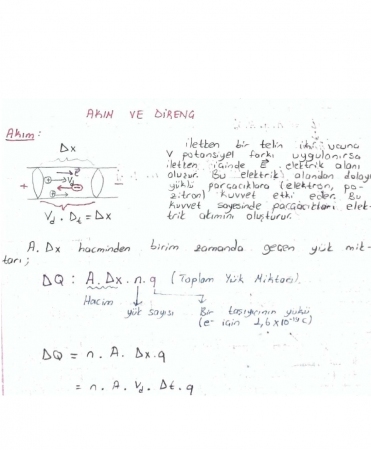 AKIM VE DİRENÇ
Akım:
Δx
E
Vd
+
-
Vd . Dt = Δx
iletken bir telin iki ucuna
V potansiyel farkı uygulanırsa
iletken içinde E elektrik alanı
oluşur. Bu elektrik alandan dolayı
yüklü parçacıklara (elektron, po-
zitron) kuvvet etki eder. Bu
kuvvet sayesinde parçacıkları elek-
trik akımını oluşturur.
A. Δx hacminden birim zamanda geçen yük mik-
tarı;
ΔQ : A. Δx. n. q (Toplam Yük Miktarı).
Hacim
yük sayısı
Bir taşıyıcının yükü
(e⁻ için 1,6x10⁻¹⁹ C)
ΔQ = n. A. Δx. q
= n. A. Vd. Δt. q